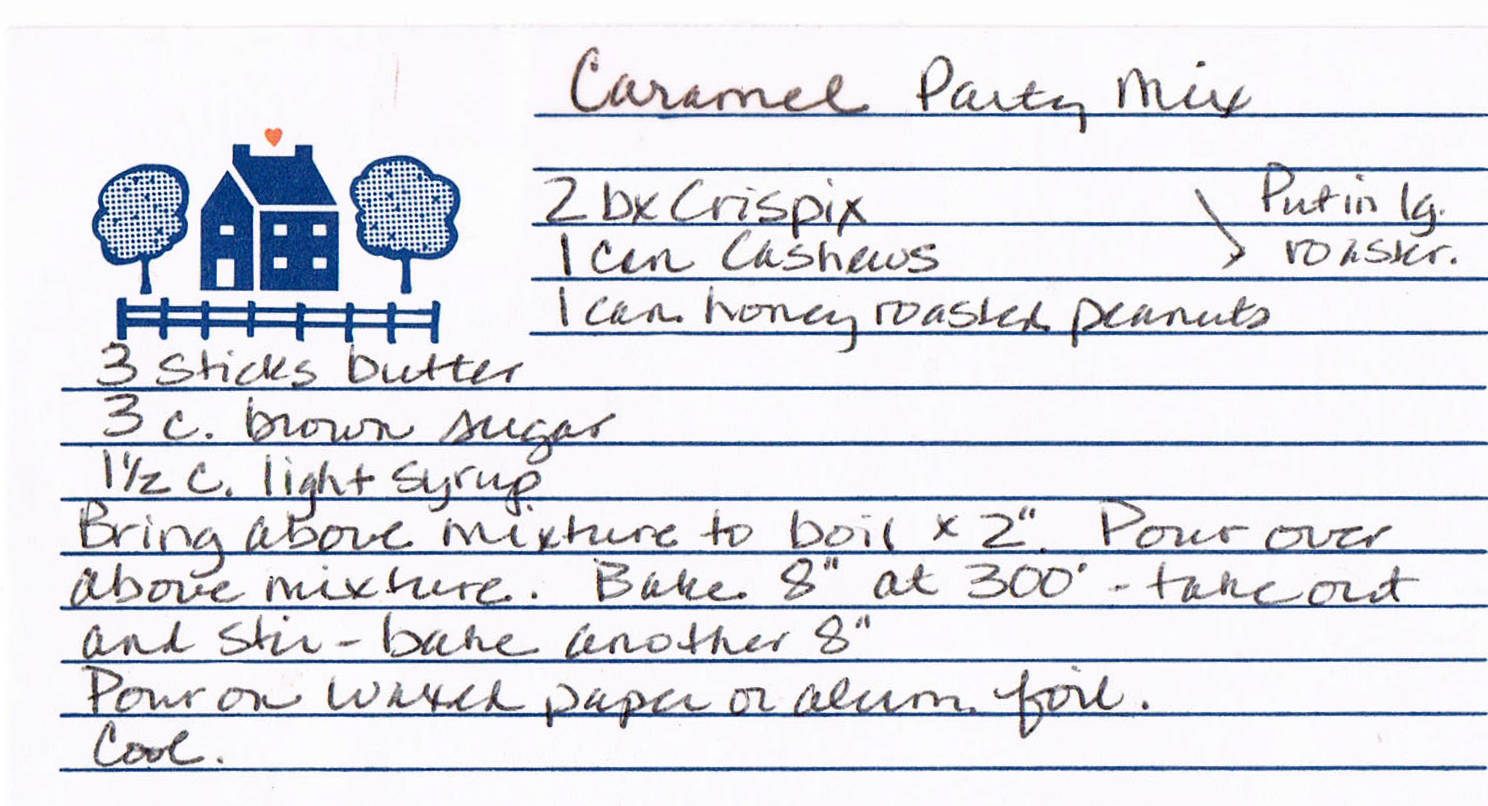 Caramel Party Mix
2 bx Crispix
1 can Cashews
1 can honey roasted peanuts
Put in lg.
roaster.
3 sticks butter
3 c. brown sugar
1½ c. light syrup
Bring above mixture to boil x 2". Pour over
above mixture. Bake 8" at 300° - take out
and stir - bake another 8"
Pour on waxed paper or alum. foil.
Cool.